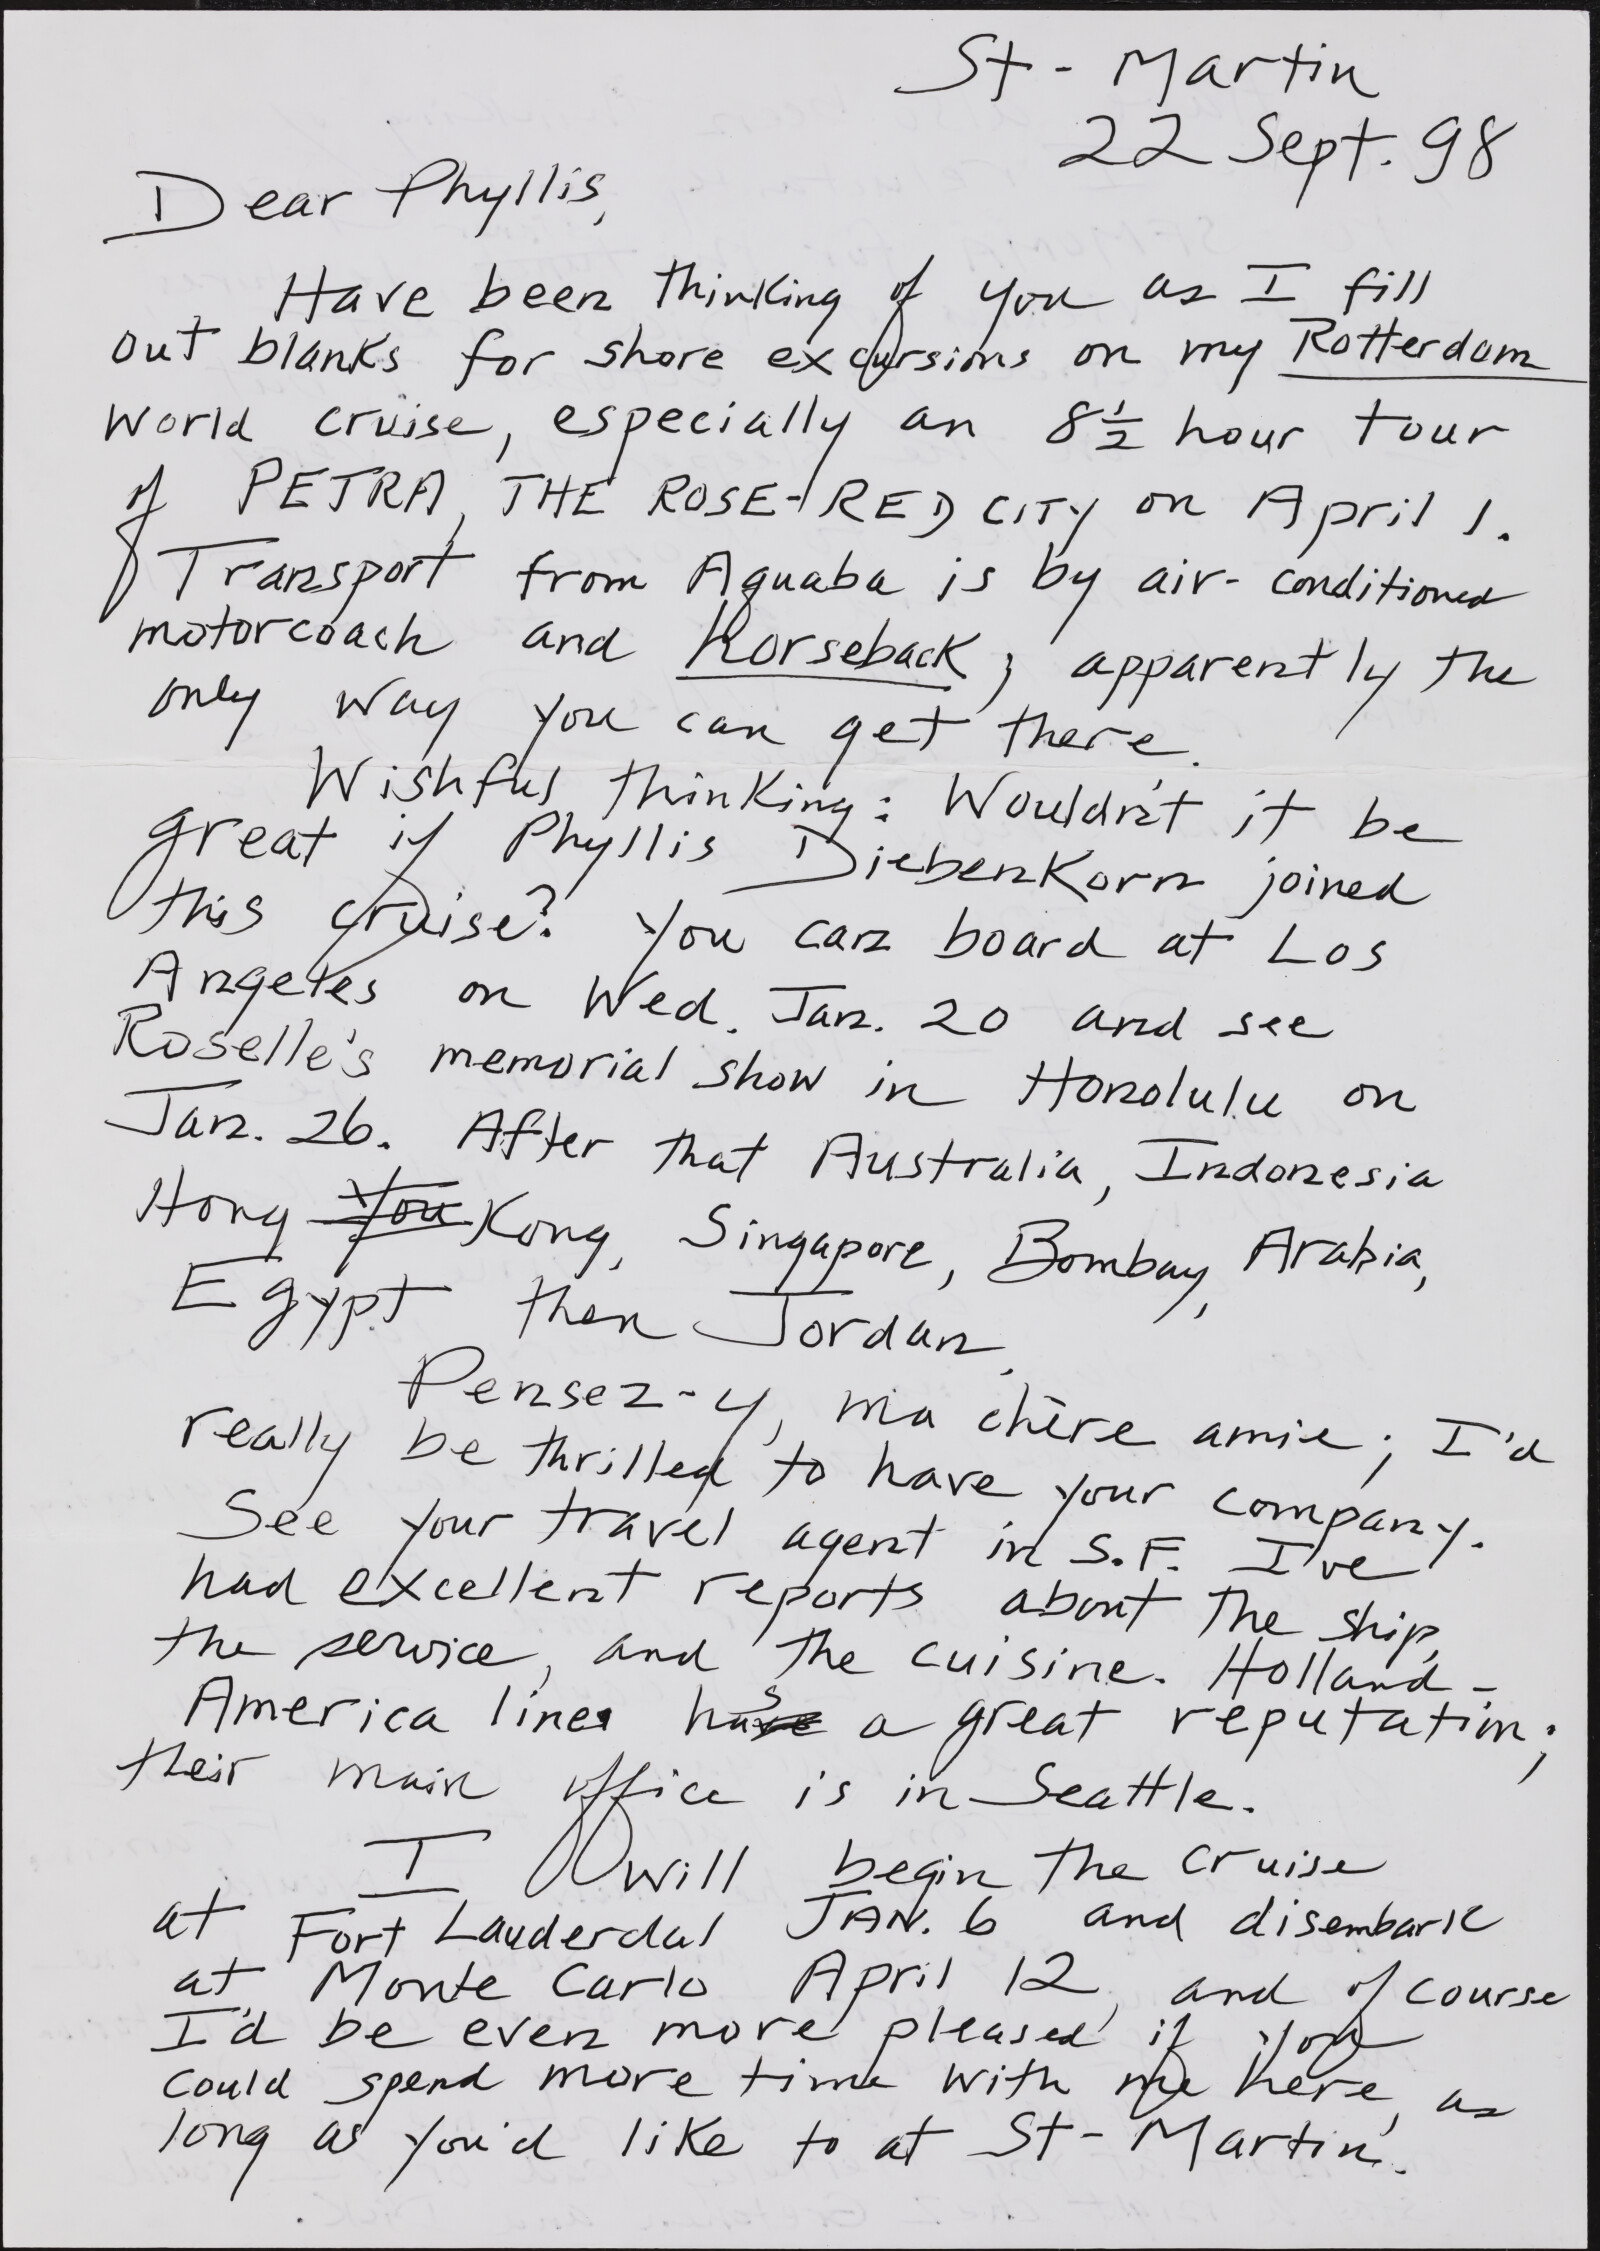 St-Martin
22 Sept. 98
Dear Phyllis,
Have been thinking of you as I fill
out blanks for shore excursions on my Rotterdam
world cruise, especially an 8½ hour tour
of PETRA, THE ROSE-RED CITY on April 1.
Transport from Aquaba is by air-conditioned
motorcoach and horseback; apparently the
only way you can get there.
Wishful thinking: Wouldn't it be
great if Phyllis Diebenkorn joined
this cruise? You can board at Los
Angeles on Wed. Jan. 20 and see
Roselle's memorial show in Honolulu on
Jan. 26. After that Australia, Indonesia
Hong You Kong, Singapore, Bombay, Arabia,
Egypt then Jordan.
Pensez-y, ma chère amie; I'd
really be thrilled to have your company.
See your travel agent in S.F. I've
had excellent reports about the ship,
the service, and the cuisine. Holland-
America line has a great reputation;
their main office is in Seattle.
I will begin the cruise
at Fort Lauderdal JAN. 6 and disembark
at Monte Carlo April 12, and of course
I'd be even more pleased if you
could spend more time with me here, as
long as you'd like to at St-Martin.